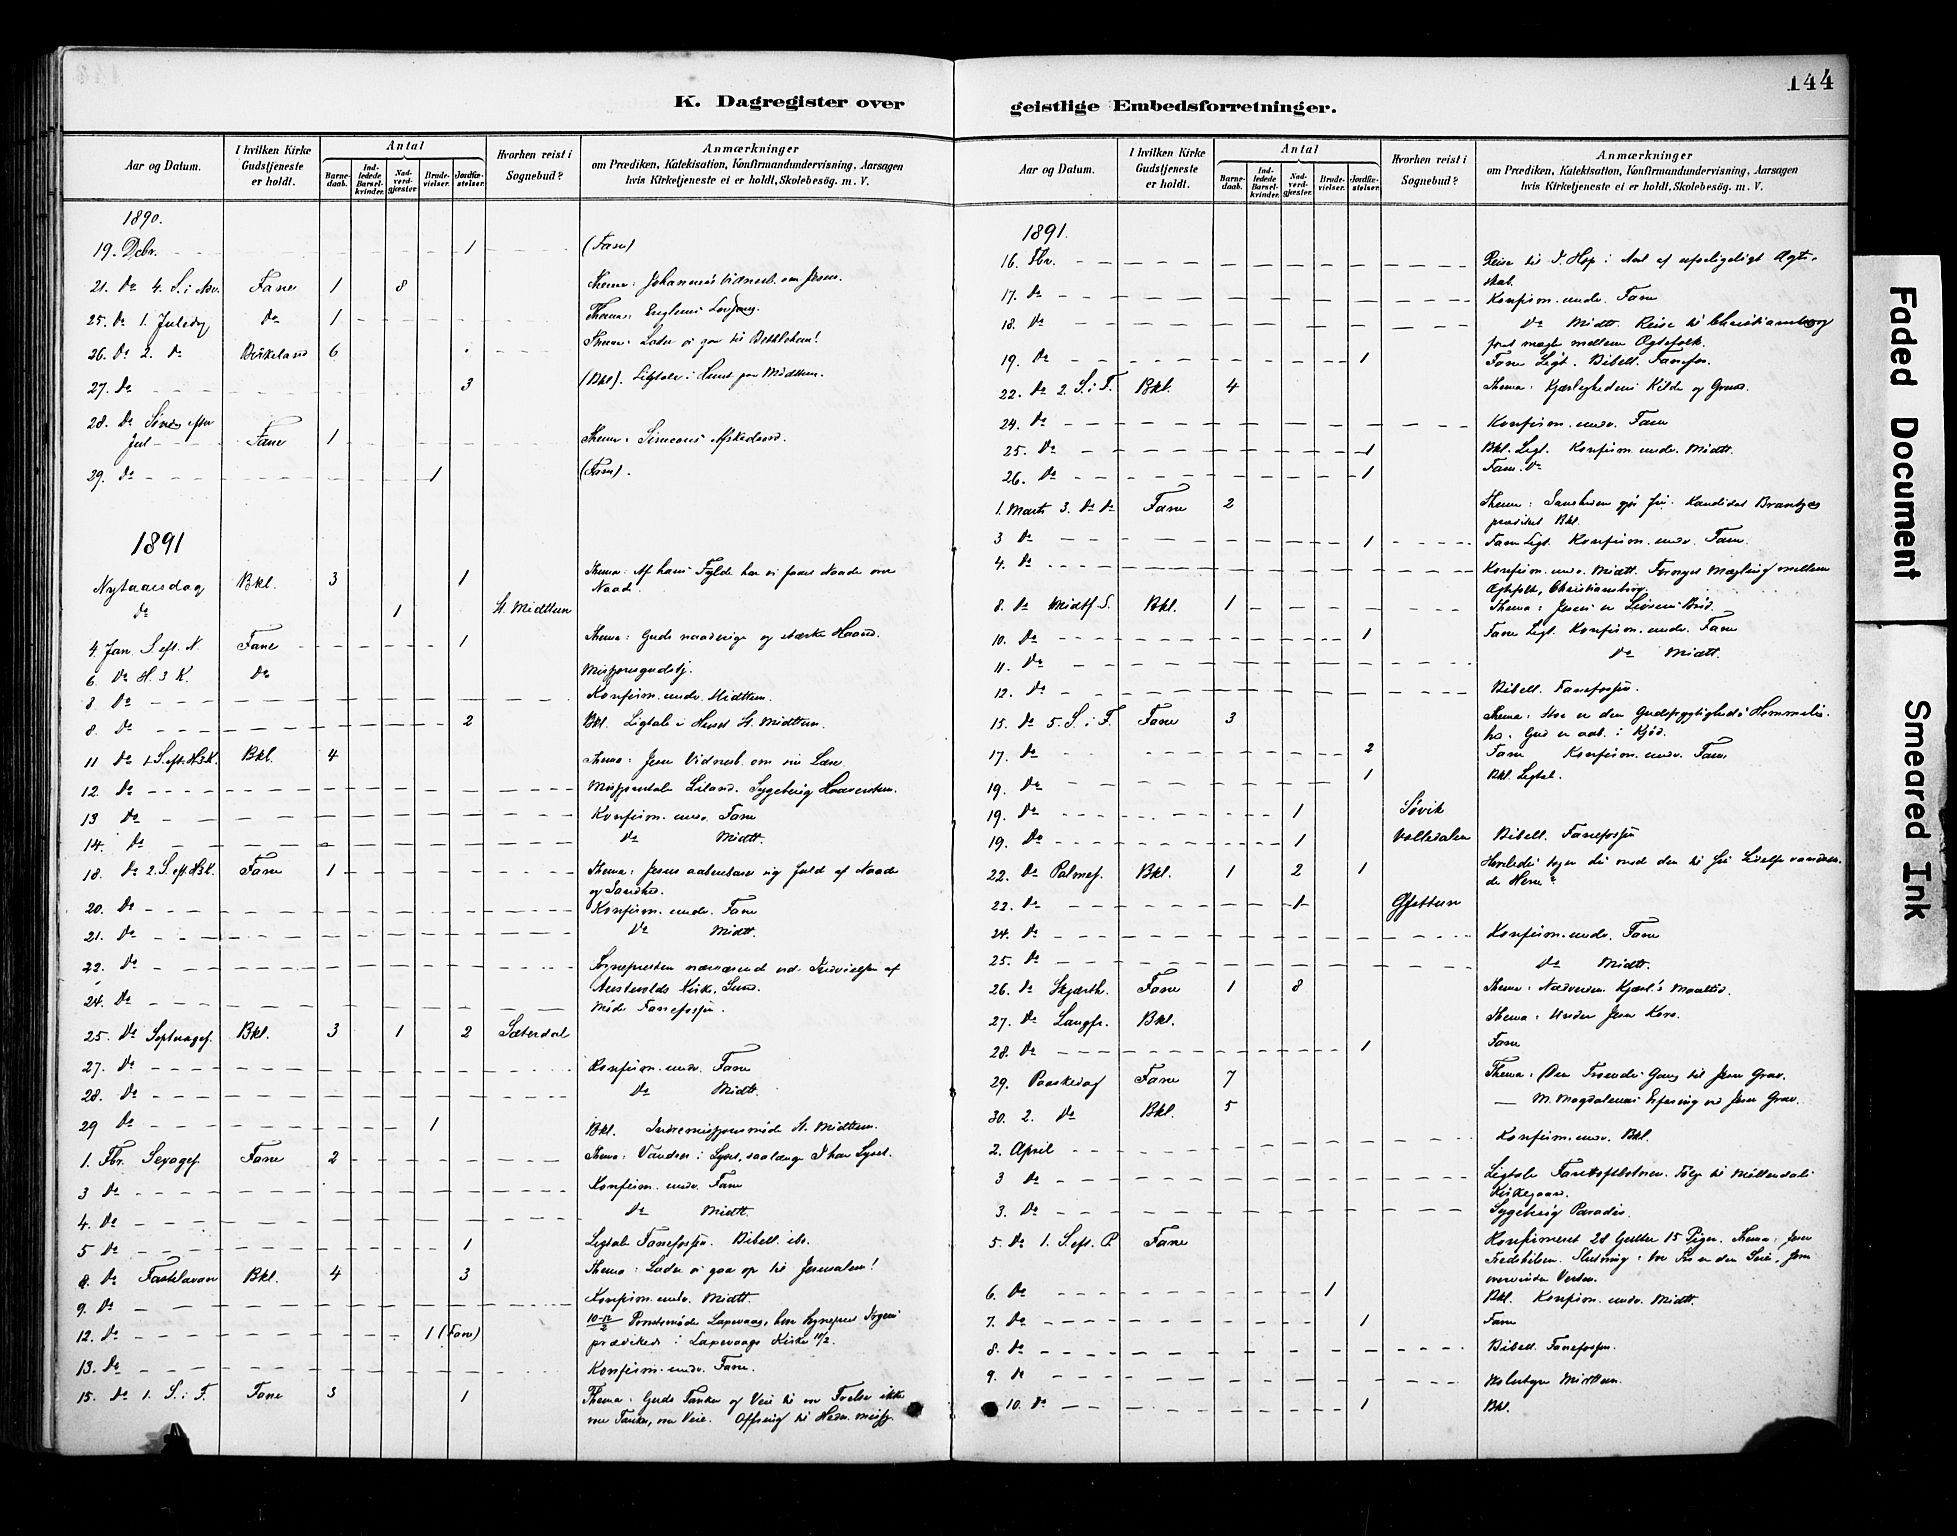 144
K. Dagregister over
geistlige Embedsforretninger.
Aar og Datum.
I hvilken Kirke Gudstjeneste er holdt.
Antal
Barnedaab.
Indledede Barselkvinder.
Nadverdgjester.
Brudevielser.
Jordfæstelser.
Hvorhen reist i Sognebud?
Anmærkninger
om Prædiken, Katekisation, Konfirmandundervisning, Aarsagen
hvis Kirketjeneste ei er holdt, Skolebesög. m. V.
1890.
19. Dcbr. 1 (Fane)
21. Do 4. S. i Adv. Fane 1 8 Thema: Johannes Vidnesb. om Jesus.
25. Do 1. Juledag Do 1 Thema: Englenes Lovsang.
26. Do 2. Do Birkeland 6 Thema: Lader os gaa til Bethlehem!
27. Do 3 (Bkl). Ligtale i Huset paa Midttun.
28. Do Sönd. efter
Jul Fane 1 Thema: Simeons Afskedsord.
29. Do 1 (Fane).
1891
Nytaarsdag Bkl. 3 1 Thema: Af hans Fylde har vi faaet Naade over
Naade.
Do 1 St. Midttun
4. Jan. S. eft. N. Fane 1 Thema: Guds naaderige og stærke Haand.
6. Do H. 3 K. Do Missionsgudstj.
8 Do Konfirm. underv. Midttun.
8. Do 2 Bkl. Ligtale i Huset St. Midttun.
11 Do 1. S. eft. H3K. Bkl. 4 Thema: Jesu Vidnesb. om sin Lære
12. Do
13 Do Konfirm. underv. Fane
14. Do Do Midtt.
18. Do 2. S. eft. H3K. Fane 1 Thema: Jesus aabenbarer sig fuld af Naade
og Sandhed.
20. Do Konfirm. underv. Fane
21. Do Do Midtt.
22. Do Sognepresten nærværende ved Indvielsen af
Austevolds Kirke, Sund.
24. Do Möde Fanefossen.
25. Do Septuagef. Bkl. 3 1 2 Sæterdal
27. Do Konfirm. underv. Fane
28. Do Do Midtt.
29 Do 1 Bkl. Indremissionsmöde St. Midttun.
1. Fbr. Sexagef. Fane 2 Thema: Vandrer i Lyset, saalænge I har Lyset.
3 Do Konfirm. underv. Fane
4. Do Do Midtt.
5 Do 1 Ligtale Fanefossen. Bibell. ib.
8. Do Fastelavn Bkl. 4 3 Thema: Lader os gaa op til Jerusalem!
9. Do Konfirm. underv. Midtt.
12. Do 1 (Fane) 10-12/2 Laxevaag,
prædikede i Laxevaags Kirke 11/2.
13. Do Konfirm. underv. Fane.
15. Do 1. S. i F. Fane 3 1 Thema: Guds Tanker og Veie
vore Tanker, vore Veie. Offring til Hedn. miss.
Aar og Datum.
I hvilken Kirke Gudstjeneste er holdt.
Antal
Barnedaab.
Indledede Barselkvinder.
Nadverdgjester.
Brudevielser.
Jordfæstelser.
Hvorhen reist i Sognebud?
Anmærkninger
om Prædiken, Katekisation, Konfirmandundervisning, Aarsagen
hvis Kirketjeneste ei er holdt, Skolebesög. m. V.
1891.
16. Fbr. Reise til Hop i Anl. af Ægte-
skab.
17. Do Konfirm. underv. Fane
18. Do Do Midtt. Reise til Christiansborg
mellem Ægtefolk.
19. Do 1 Fane Ligt. Bibell. Fanefos.
22. Do 2. S. i F. Bkl. 4 Thema: Kjærlighedens Kilde og Grund.
24. Do Konfirm. underv. Fane
25. Do 1 Bkl. Ligt. Konfirm. underv. Midtt.
26. Do 1 Fane. Do
1. Marts 3. Do Do Fane 2 Thema: Sandheden gjör fri. Kandidat
Bkl.
3 Do 1 Fane Ligt. Konfirm. underv. Fane.
4. Do Konfirm. underv. Midtt. Fornyet Mægling mellem
Ægtefolk, Christiansborg.
8. Do Midtf. S. Bkl. 1 Thema: Jesus er Livsens Bröd.
10. Do 1 Fane Ligt. Konfirm. underv. Fane
11. Do Do Midtt.
12. Do Bibell. Fanefossen.
15. Do 5. S. i F. Fane 3 Thema: Stor er den Gudfrygtigheds Hemmelig-
hed. Gud er aab. i Kjöd.
17. Do 2 Fane Konfirm. underv. Fane
19. Do 1 Bkl. Ligtal.
19. Do 1 Sövik
19. Do 1 Bibell. Fanefossen
22. Do Palmes. Bkl. 1 2 1
22. Do 1
24. Do Konfirm. underv. Fane
25. Do Do Midtt.
26. Do Skjærth. Fane 1 8 Thema: Nadveren Kjærl.s Maaltid.
27. Do Langfr. Bkl. Thema: Under Jesu Kors.
28. Do 1 Fane
29. Paaskedag Fane 7 Thema: Den Troendes Gang til Jesu Grav.
30. 2. Do Bkl. 5 — M. Magdalenas Erfaring ved Jesu Grav.
2. April Konfirm. underv. Bkl.
3 Do Ligtale Følg til Möllendals
Kirkegaard.
3. Do Sygebesög Paradis.
5. Do 1. S. eft. P. Fane Konfirmeret 28 Gutter 15 Piger. Thema: Jesu
Fredshilsen. Slutning: vor Tro er den Seir, som
overvinder Verden.
6. Do 1 Bkl. Konfirm. underv. Midtt.
7. Do 1 Fane
8. Do Bibell. Fanefossen.
9. Do Midttun.
10. Do 1 Bkl.
Faded Document
Smeared Ink